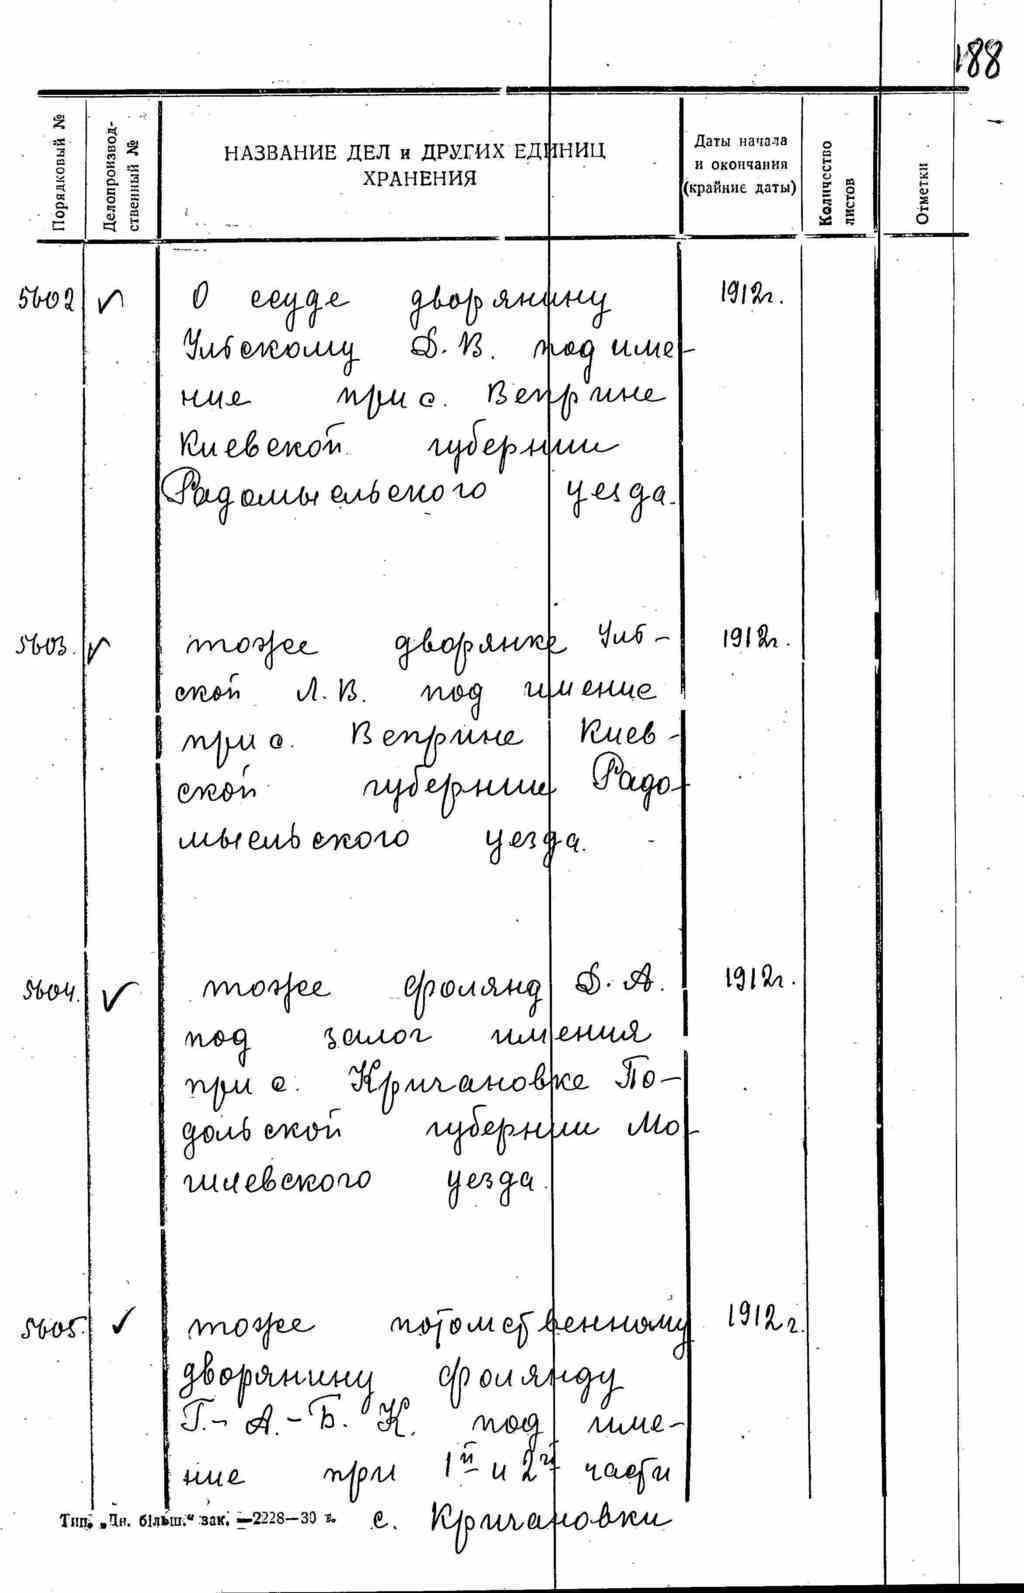 188
Порядковый №
Делопроизвод-
ственный №
НАЗВАНИЕ ДЕЛ и ДРУГИХ ЕДИНИЦ
ХРАНЕНИЯ
Даты начала
и окончания
(крайние даты)
Количество
листов
Отметки
5602 О ссуде дворянину 1912г.
Ульскому Д.В. под име-
ние при с. Веприне
Киевской губернии
Радомысльского уезда.
5603. тоже дворянке Уль- 1912г.
ской Л.В. под имение
при с. Веприне Киев-
ской губернии Радо-
мысльского уезда.
5604. тоже Фолянд Д.А. 1912г.
под залог имения
при с. Кричановке По-
дольской губернии Мо-
гилевского уезда.
5605. тоже потомственному 1912г.
дворянину Фолянду
Г.-А.-Б. К. под име-
ние при 1й и 2й части
с. Кричановки
Тип. „Дн. більш.“ зак. —2228—30 г.